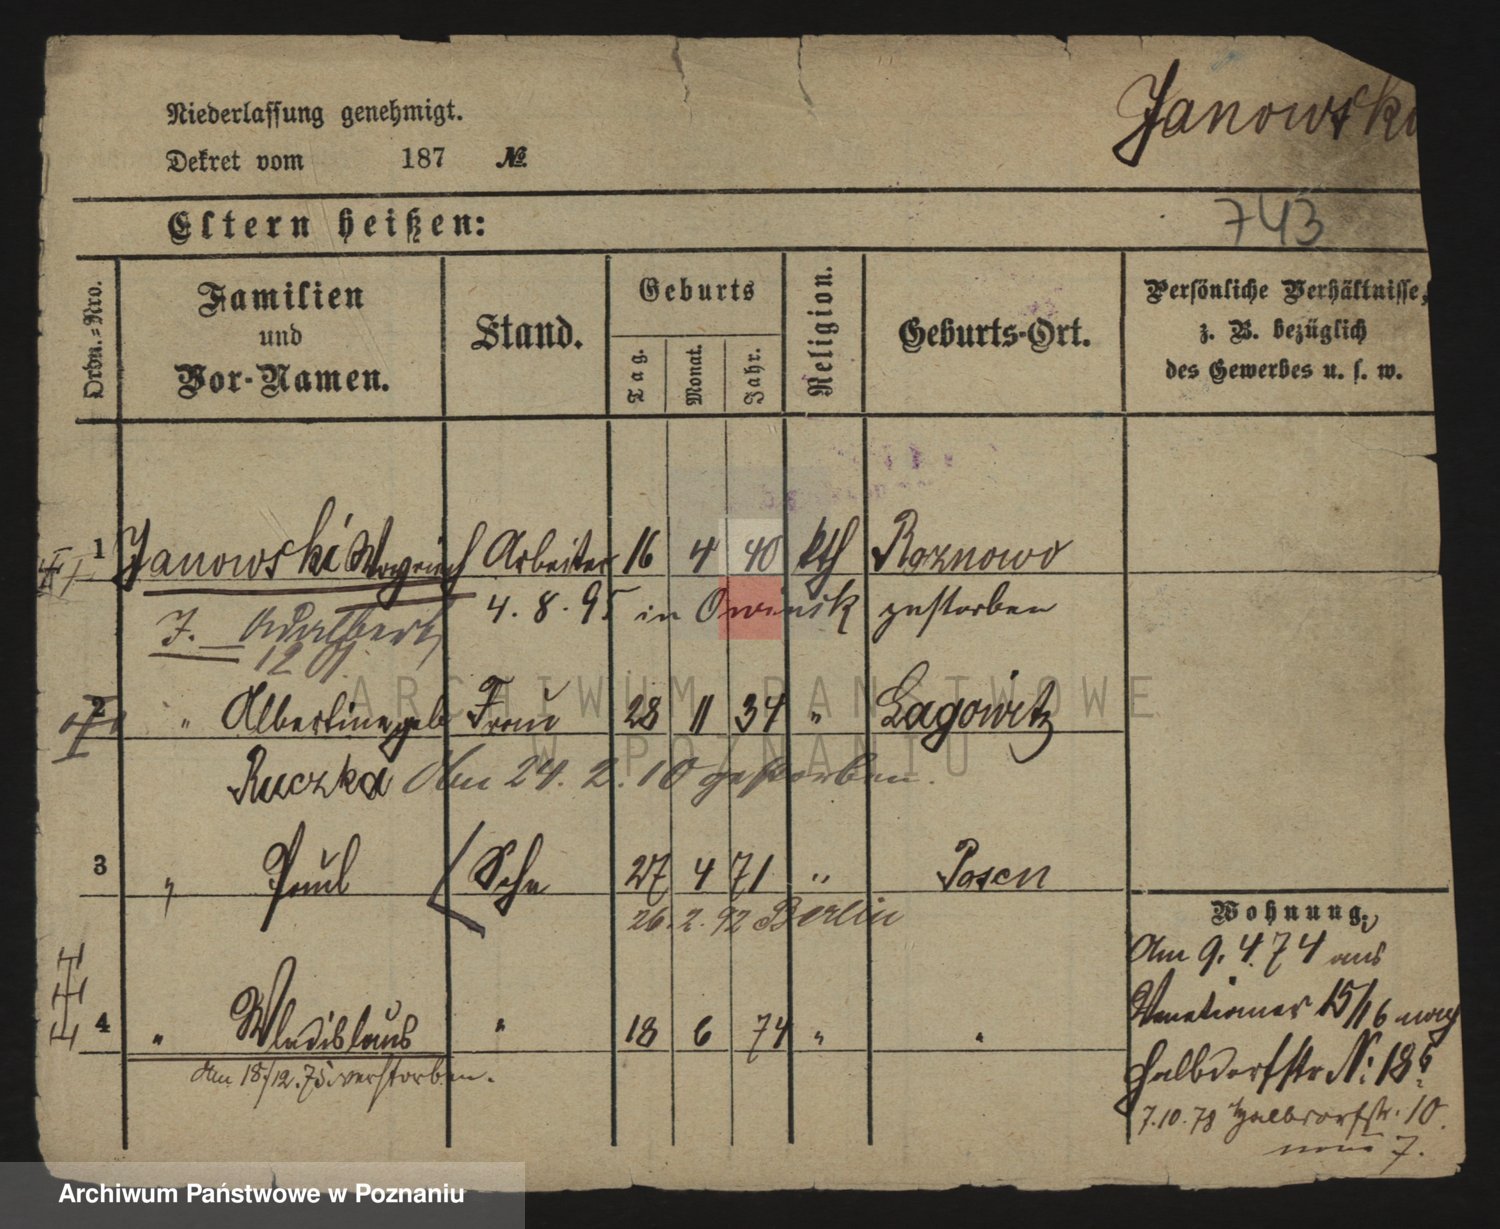 Niederlassung genehmigt.
Janowski
Dekret vom 187 №
Eltern heißen:
743
Ordn.-Nro.
Familien und Vor-Namen.
Stand.
Geburts
Tag.
Monat.
Jahr.
Religion.
Geburts-Ort.
Persönliche Verhältnisse,
z. B. bezüglich
des Gewerbes u. s. w.
1 Janowski Arbeiter 16 4 40 kth Roznowo
4. 8. 95 in Owinsk gestorben
J. — Adalbert
1201.
2 " Albertine geb Frau 28 11 34 " Lagowitz
Ruczka Am 24. 2. 10 gestorben.
3 " Paul Sohn 27 4 71 " Posen
26. 2. 92 Berlin
4 " Wladislaus " 18 6 74 " "
Am 18/12. 75 verstorben.
Wohnung.
Am 9. 4. 74 aus
Venetianer 15/16 nach
Halbdorfstr N: 18b
7.10.78 Halbdorfstr. 10.
7.
ARCHIWUM PAŃSTWOWE
W POZNANIU
Archiwum Państwowe w Poznaniu